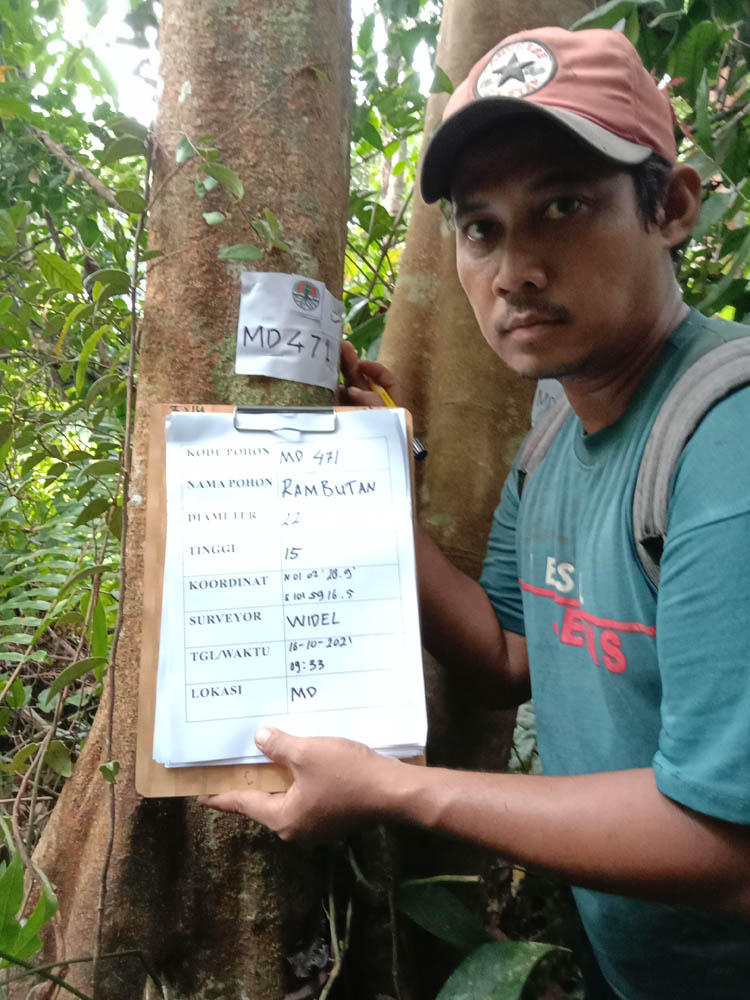 MD 471
KODE POHON MD 471
NAMA POHON RAMBUTAN
DIAMETER 22
TINGGI 15
KOORDINAT N 01 02' 28.9"
E 101 59 16.5
SURVEYOR WIDEL
TGL/WAKTU 16-10-2021
09:33
LOKASI MD